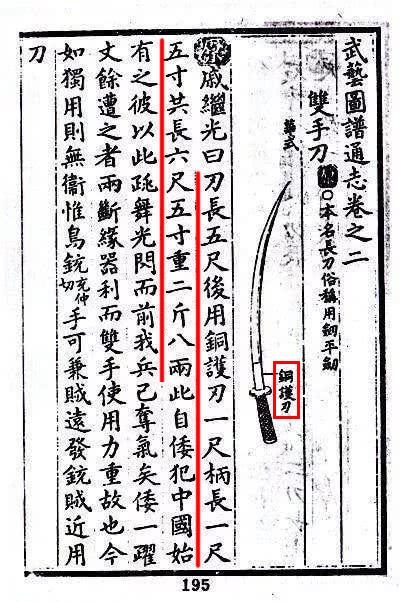 武藝圖譜通志卷之二
雙手刀○本名長刀俗稱用劒平劒
華式
銅護刃
戚繼光曰刀長五尺後用銅護刃一尺柄長一尺
五寸共長六尺五寸重二斤八兩此自倭犯中國始
有之彼以此跳舞光閃而前我兵已奪氣矣倭一躍
丈餘遭之者兩斷緣器利而雙手使用力重故也今
如獨用則無衛惟鳥銃充仲切手可兼賊遠發銃賊近用
刀
195